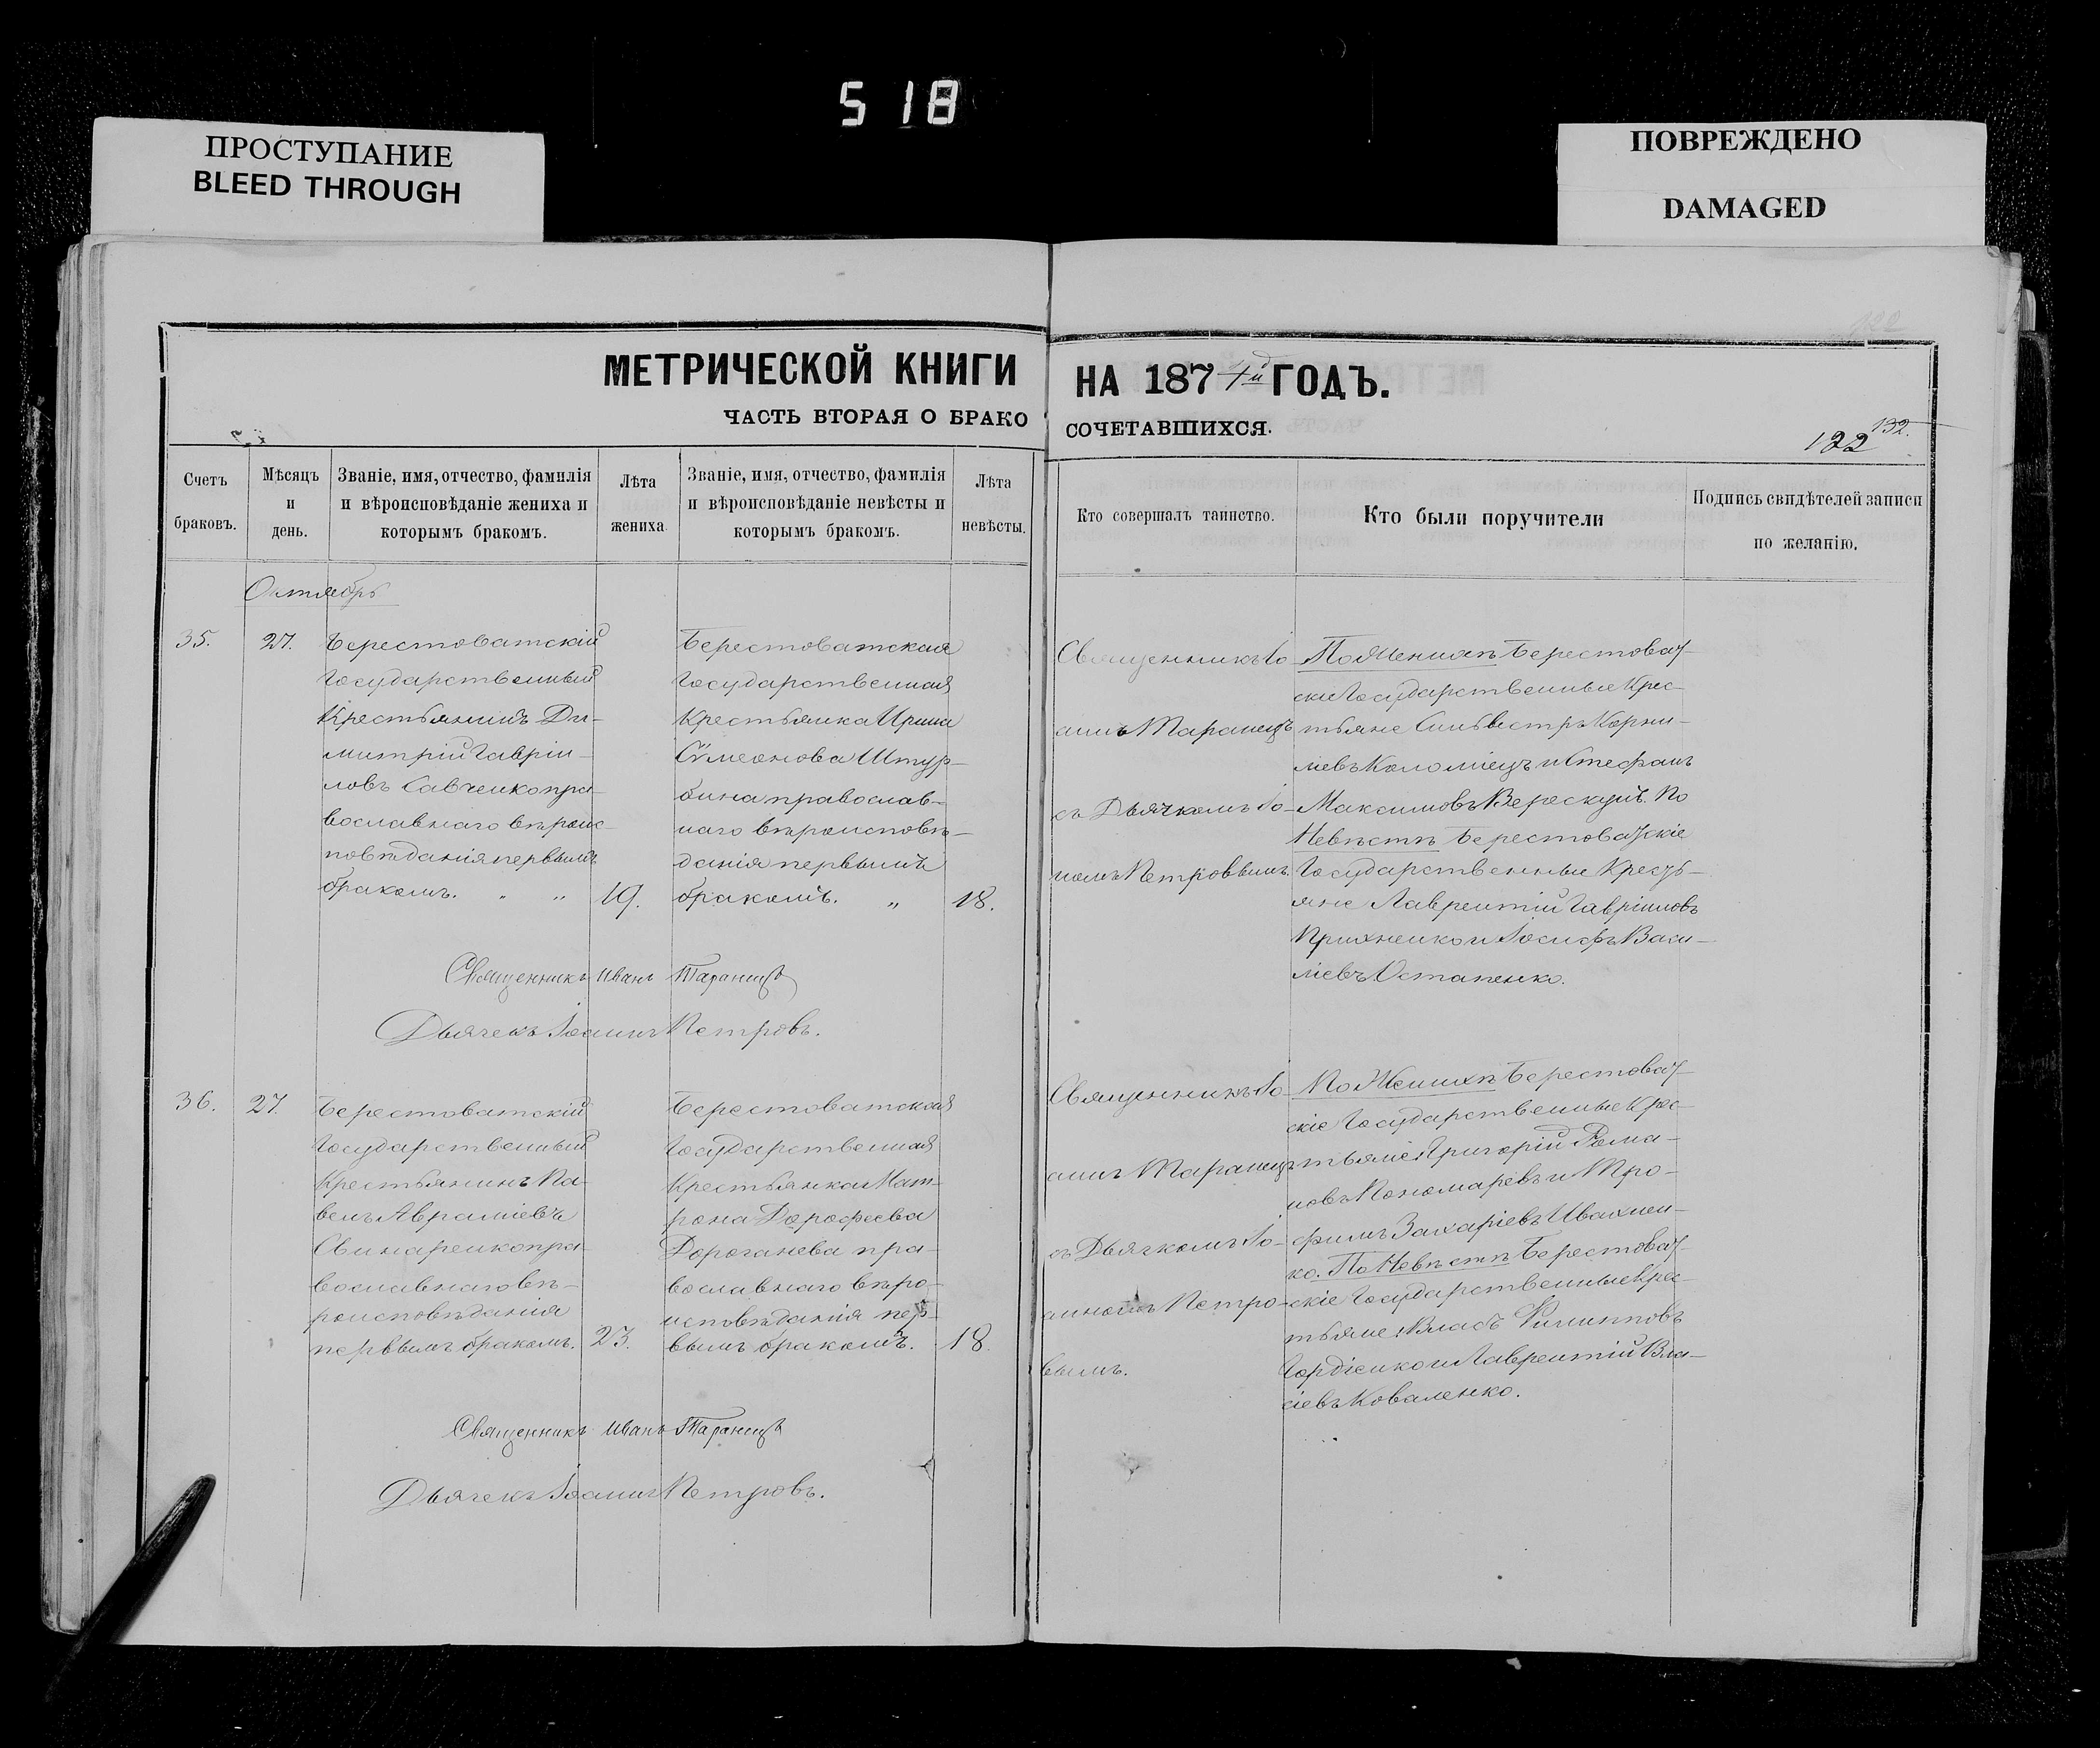 518
ПРОСТУПАНИЕ
BLEED THROUGH
ПОВРЕЖДЕНО
DAMAGED
МЕТРИЧЕСКОЙ КНИГИ НА 1874й ГОДЪ.
ЧАСТЬ ВТОРАЯ О БРАКО СОЧЕТАВШИХСЯ.
132.
122
Счетъ
браковъ.
Мѣсяцъ
и
день.
Званіе, имя, отчество, фамилія
и вѣроисповѣданіе жениха и
которымъ бракомъ.
Лѣта
жениха
Званіе, имя, отчество, фамилія
и вѣроисповѣданіе невѣсты и
которымъ бракомъ.
Лѣта
невѣсты.
Кто совершалъ таинство.
Кто были поручители
Подпись свидѣтелей записи
по желанію.
Октябрь
35.
27.
Берестоватскій
Государственный
Крестьянинъ Ди-
митрій Гавріи-
ловъ Савченко пра-
вославнаго вѣроис-
повѣданія первымъ
бракомъ. „ „
19.
Берестоватская
Государственная
Крестьянка Ирина
Сѵмеонова Штур-
бина православ-
наго вѣроисповѣ-
данія первымъ
бракомъ. „
18.
Священникъ Іо-
аннъ Таранецъ
съ Дьячкомъ Іо-
номъ Петровымъ.
По Женихѣ Берестоват-
скіе Государственные Крес-
тьяне Сильвестръ Корни-
ліевъ Коломіецъ и Стефанъ
Максимовъ Верескунъ. По
Невѣстѣ Берестоватскіе
Государственные Кресть-
яне Лаврентій Гавріиловъ
Прихненко и Іосифъ Васи-
ліевъ Остапенко.
Священникъ Иванъ Таранецъ
Дьячекъ Іоаннъ Петровъ.
36.
27.
Берестоватскій
Государственный
Крестьянинъ Па-
велъ Авраміевъ
Свинаренко пра-
вославнаго вѣ-
роисповѣданія
первымъ бракомъ.
23.
Берестоватская
Государственная
Крестьянка Мат-
рона Дорофеева
Дороганева пра-
вославнаго вѣро-
исповѣданія пер-
вымъ бракомъ.
18.
Священникъ Іо-
аннъ Таранецъ
съ Дьячкомъ Іо-
анномъ Петро-
вымъ.
По Женихѣ Берестоват-
скіе Государственные Крес-
тьяне: Григорій Рома-
новъ Пономаревъ и Тро-
фимъ Захаріевъ Ивахнен-
ко. По Невѣстѣ Берестоват-
скіе Государственные Крес-
тьяне: Власъ Филипповъ
Гордіенко и Лаврентій Вла-
сіевъ Коваленко.
Священникъ Иванъ Таранецъ
Дьячекъ Іоаннъ Петровъ.